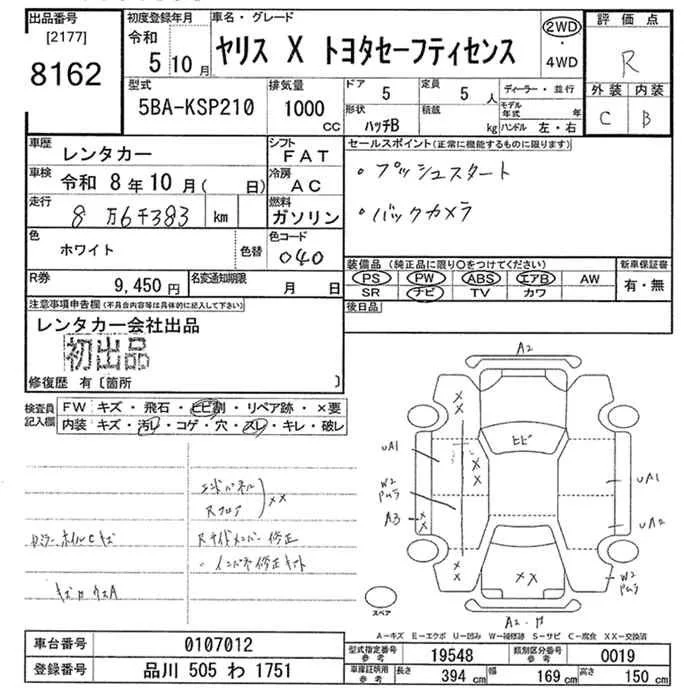 出品番号
[2177]
8162
初度登録年月
令和
5 10月
車名・グレード
ヤリス X トヨタセーフティセンス
2WD
・
4WD
評価点
R
外装 内装
C B
型式
5BA-KSP210
排気量
1000
CC
ドア
5
形状
ハッチB
定員
5 人
積載
kg
ディーラー・並行
モデル
年式 年
ハンドル 左・右
車歴
レンタカー
シフト
FAT
セールスポイント(正常に機能するものに限ります)
・プッシュスタート
・バックカメラ
車検 令和 8年10月( 日)
冷房
AC
走行
8万6千383 km
燃料
ガソリン
色
ホワイト
色替
色コード
040
R券
9,450円
名変通知期限
月 日
装備品 (純正品に限り○をつけてください)
PS PW ABS エアB AW
SR ナビ TV カワ
新車保証書
有・無
後日品
注意事項申告欄(不具合内容等は具体的に記入して下さい)
レンタカー会社出品
初出品
修復歴 有〔箇所 〕
検査員
記入欄
FW キズ・飛石・ヒビ割・リペア跡・×要
内装 キズ・汚レ・コゲ・穴・スレ・キレ・破レ
エンドパネル
Rフロア
××
Rサイドメンバー修正
・インパネ修正キズ
A2
××
ヒビ
UA1
××
W2
A3
××
UA1
UA2
W2
××
××
スペア
A-キズ E-エクボ U-凹み W-補修跡 S-サビ C-腐食 XX-交換済
車台番号 0107012
登録番号 品川 505 わ 1751
型式指定番号
参考
19548
類別区分番号
参考
0019
車庫証明用
参考
長さ 394 cm 幅 169 cm 高さ 150 cm